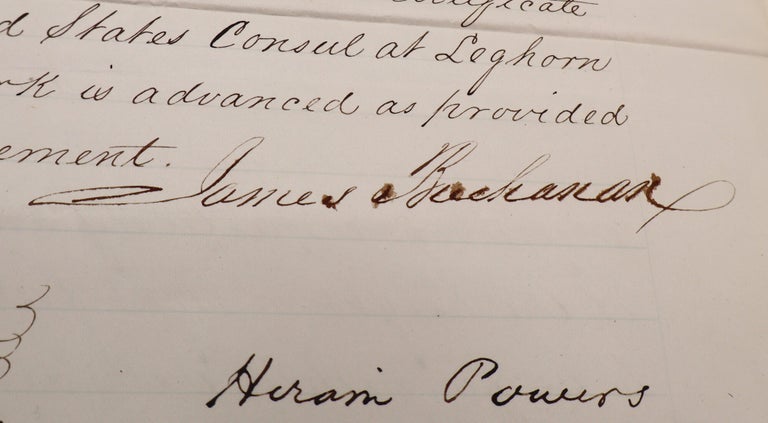 d States Consul at Leghorn
is advanced as provided
ement.
James Buchanan
Hiram Powers